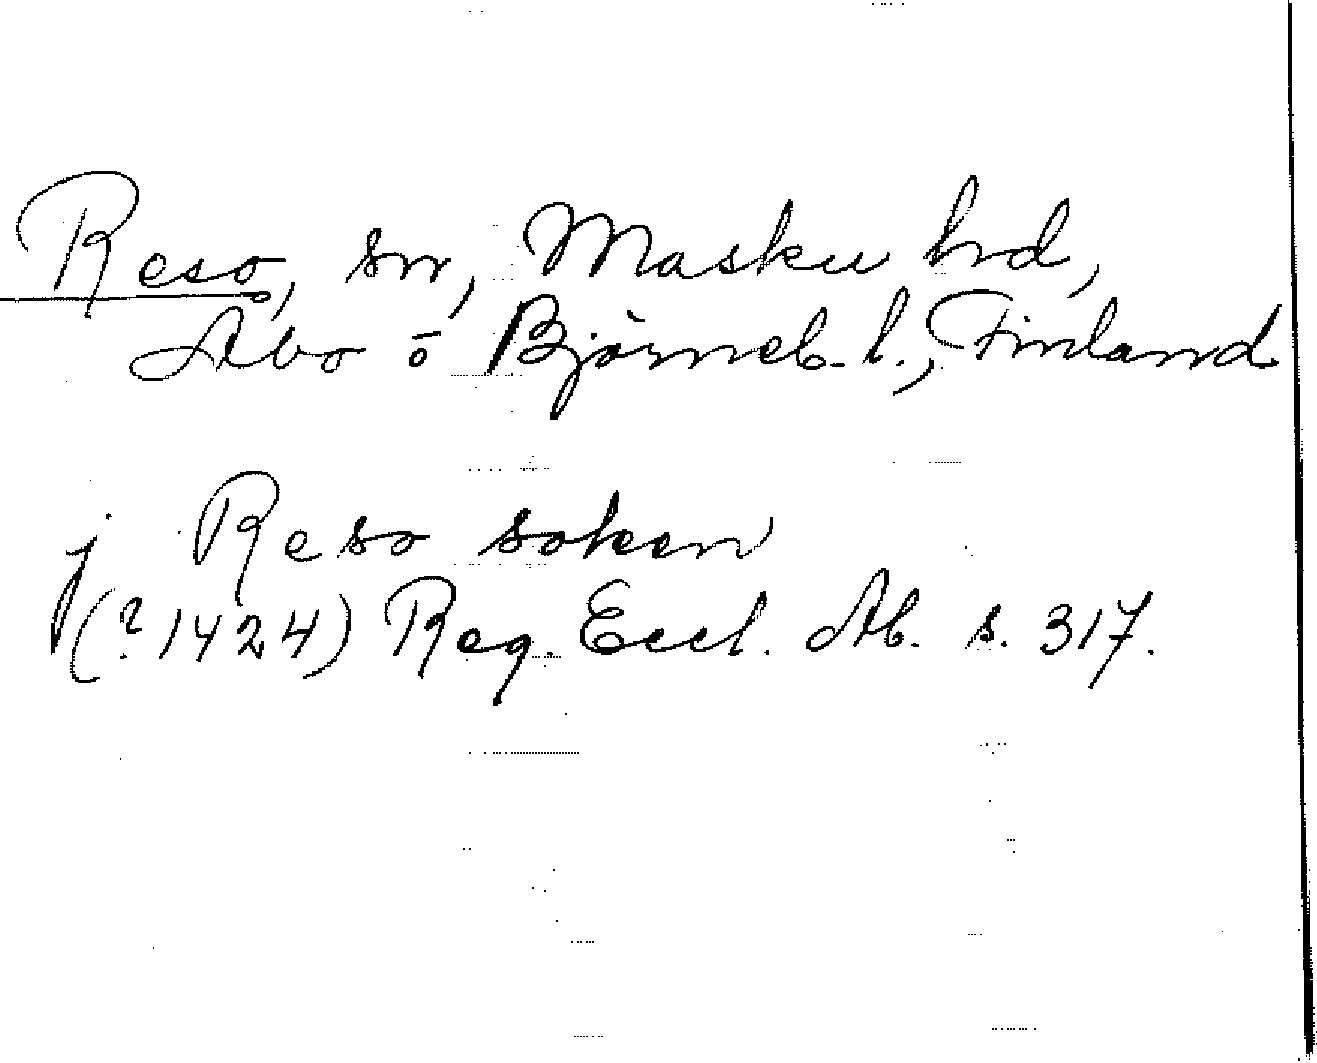 Reso, sn, Masku hd,
Åbo ö Björneb. l., Finland
j Reso soken
(? 1424) Reg. Eccl. Ab. s. 317.